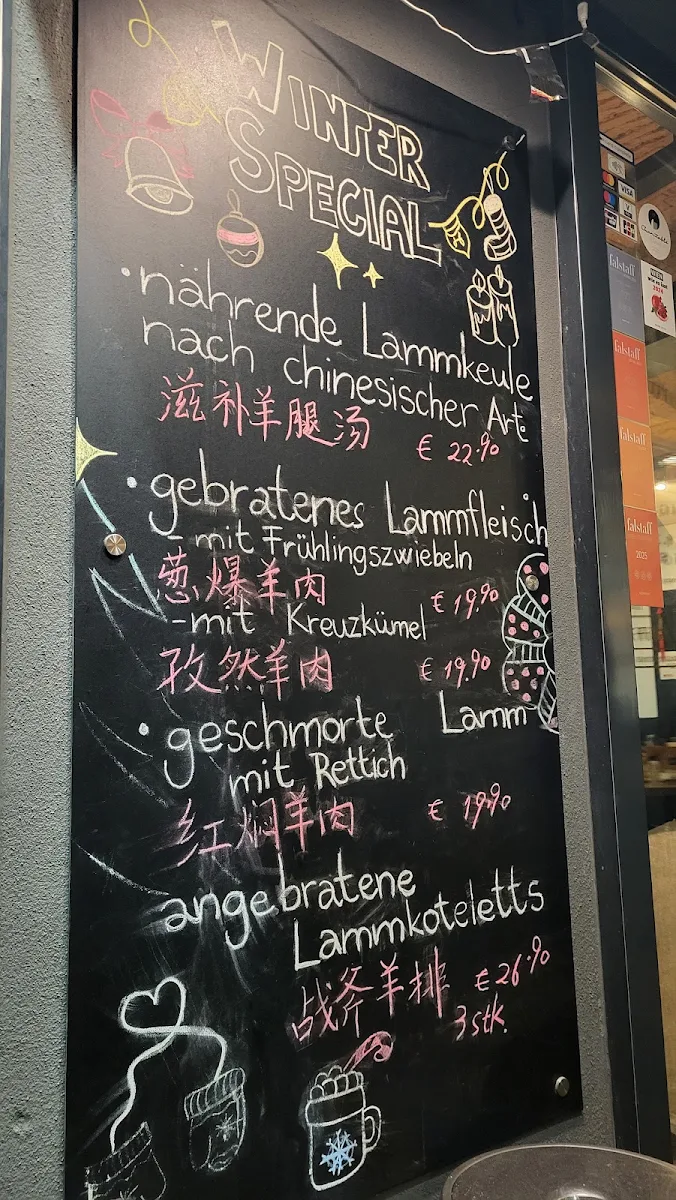 WINTER
SPECIAL
• nährende Lammkeule
nach chinesischer Art
滋补羊腿汤 € 22.90
• gebratenes Lammfleisch
- mit Frühlingszwiebeln
葱爆羊肉 € 19.90
- mit Kreuzkümel
孜然羊肉 € 19.90
• geschmorte Lamm
mit Rettich
红焖羊肉 € 19.90
angebratene
Lammkoteletts
战斧羊排 € 26.90
3 stk.
VISA
falstaff
falstaff
falstaff
falstaff
2025